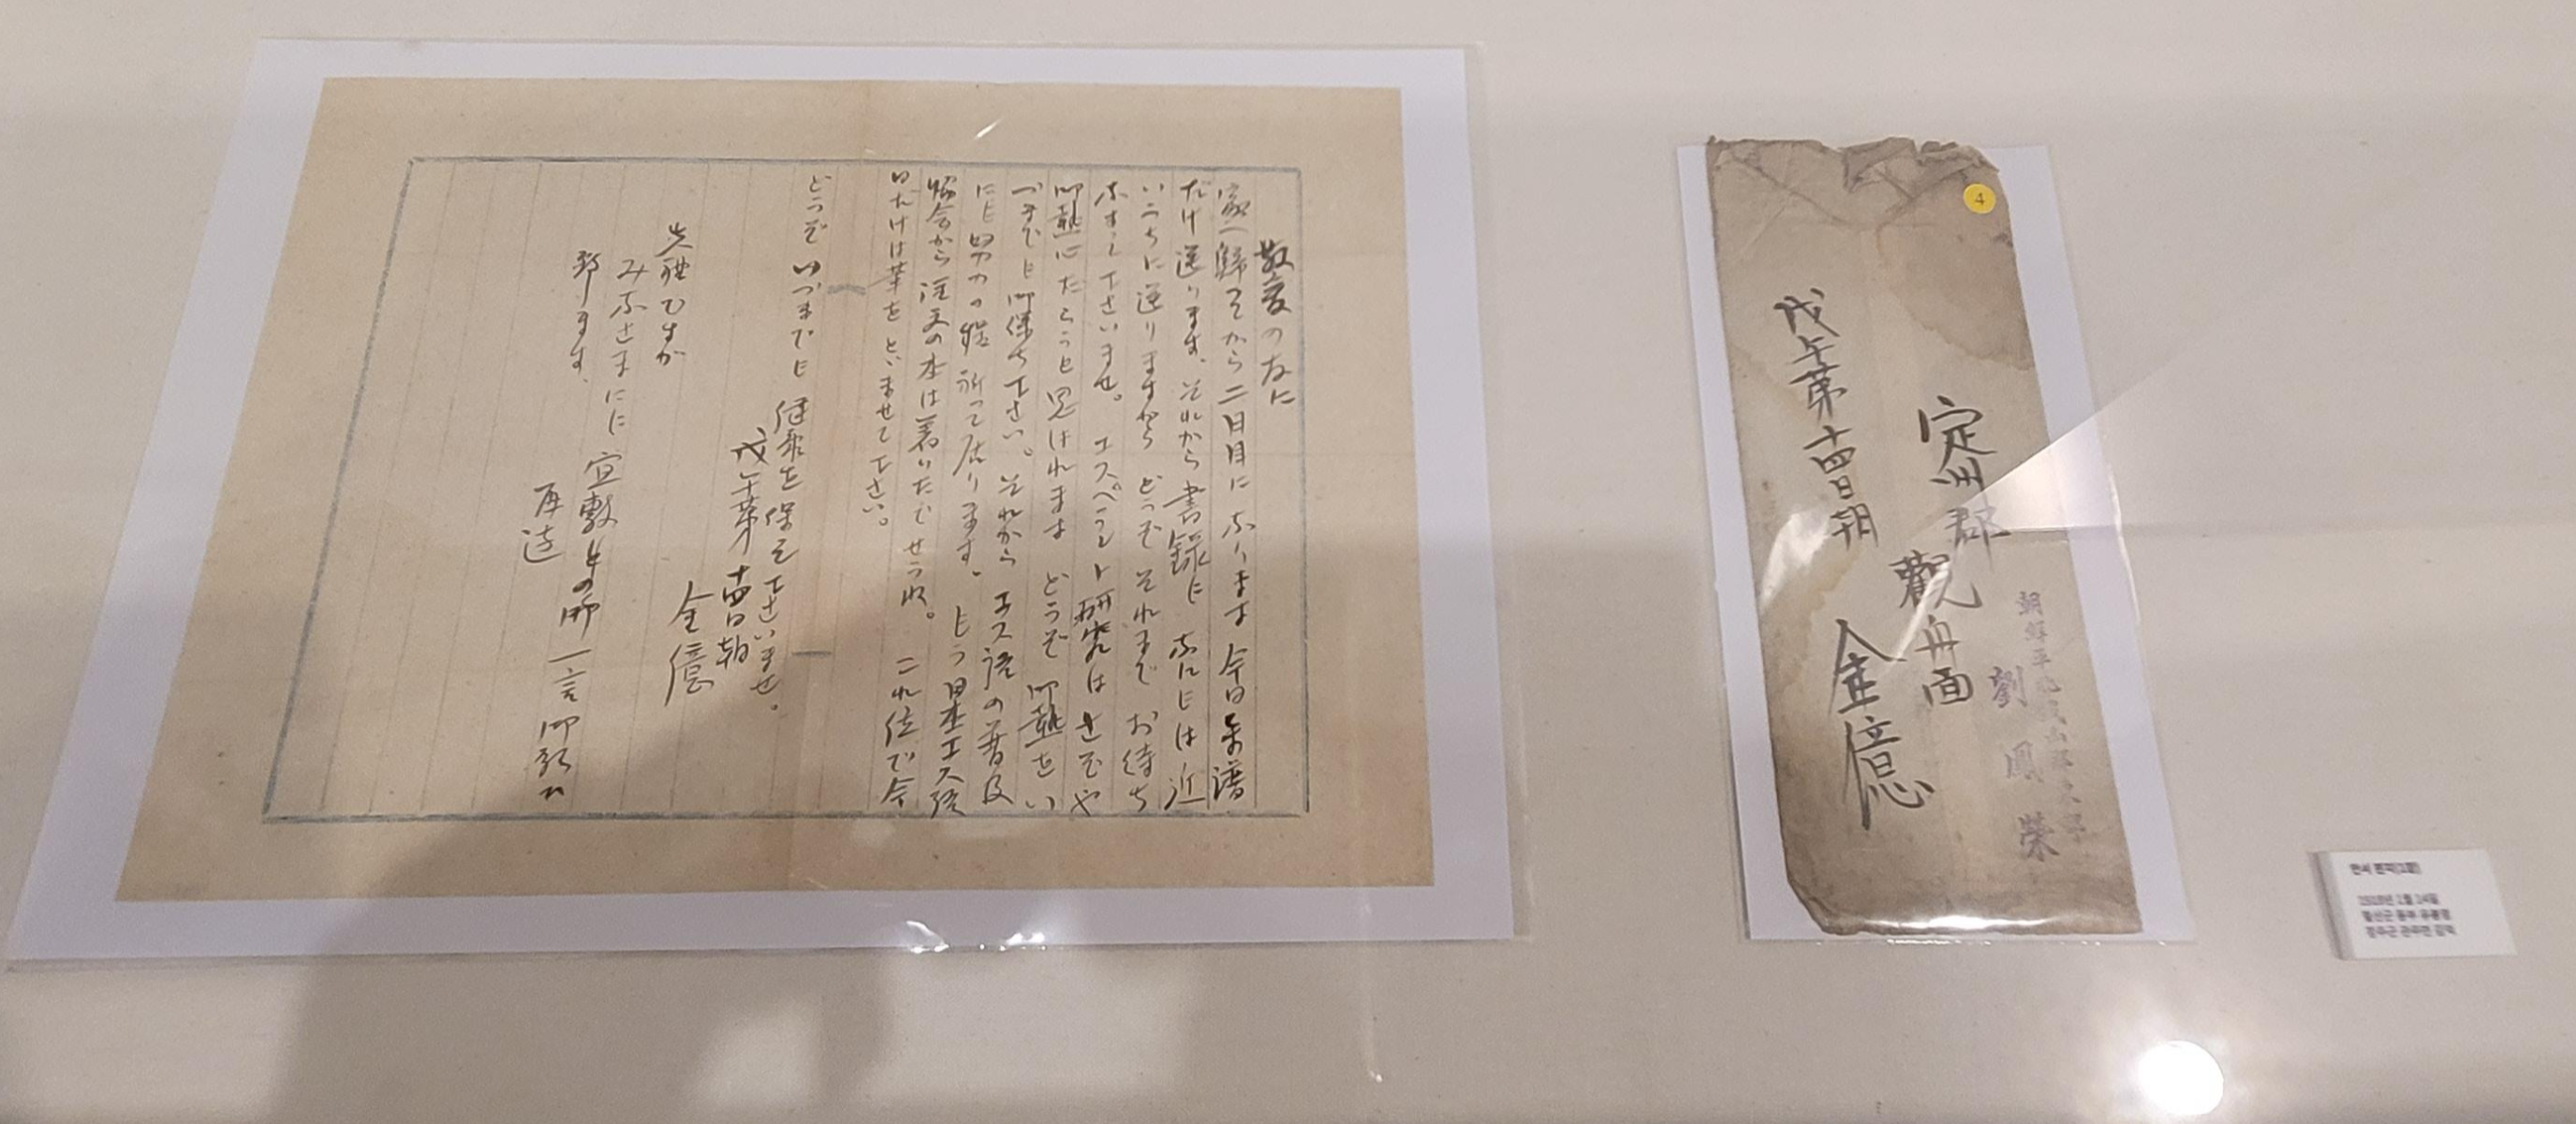 敬愛の友に
家へ歸てから二日目になります 今日楽譜
だけ送ります。それから書録に なにとは近
いうちに送りますから どうぞ それまで お待ち
なすて下さいませ。 エスペラント研究は さぞや
御熱心だらうと思はれます どうぞ 御熱をい
つまでも御保ち下さい。それから エス語の普及
にも努力の程 祈って居ります。 もう日本エス語
協会から注文の本は着いたでせうね。 これ位で今
日だけは筆をとゞませて下さい。
どうぞ いつまでも 健康を保て下さいませ。
戊午第十四日朝
金億
失禮ですが
みなさまにに 宜敷との御一言御頼れ
那ます。
再逹
定州郡觀舟面
金億
戊午第十四日朝
朝鮮平北
劉鳳榮
1918년 1월 14일